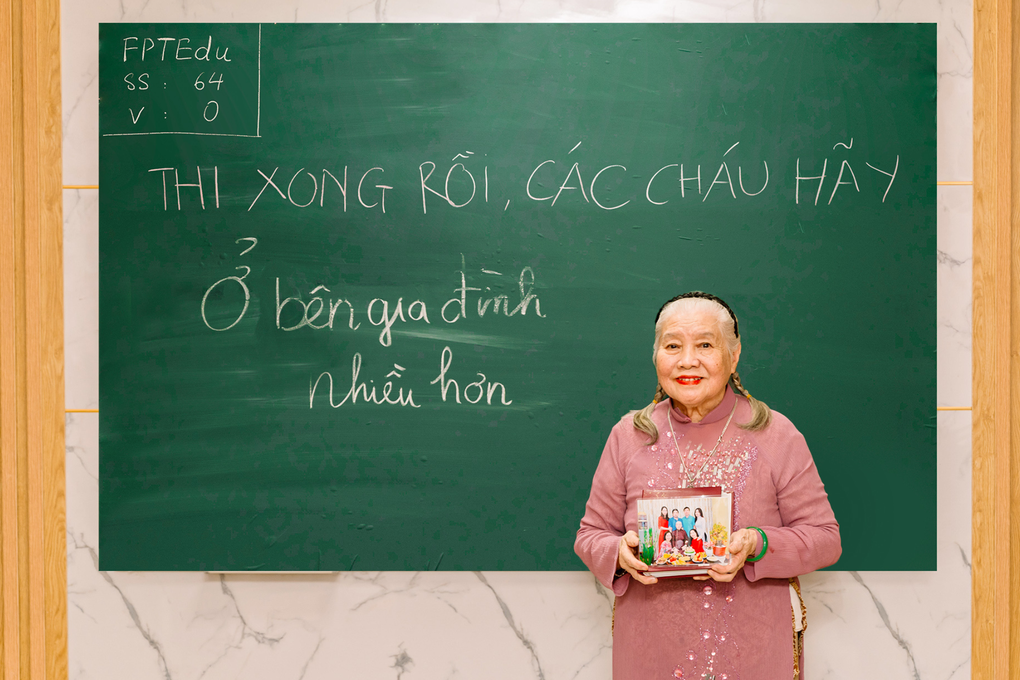 FPTEdu
SS : 64
V : 0
THI XONG RỒI, CÁC CHÁU HÃY
Ở bên gia đình
nhiều hơn